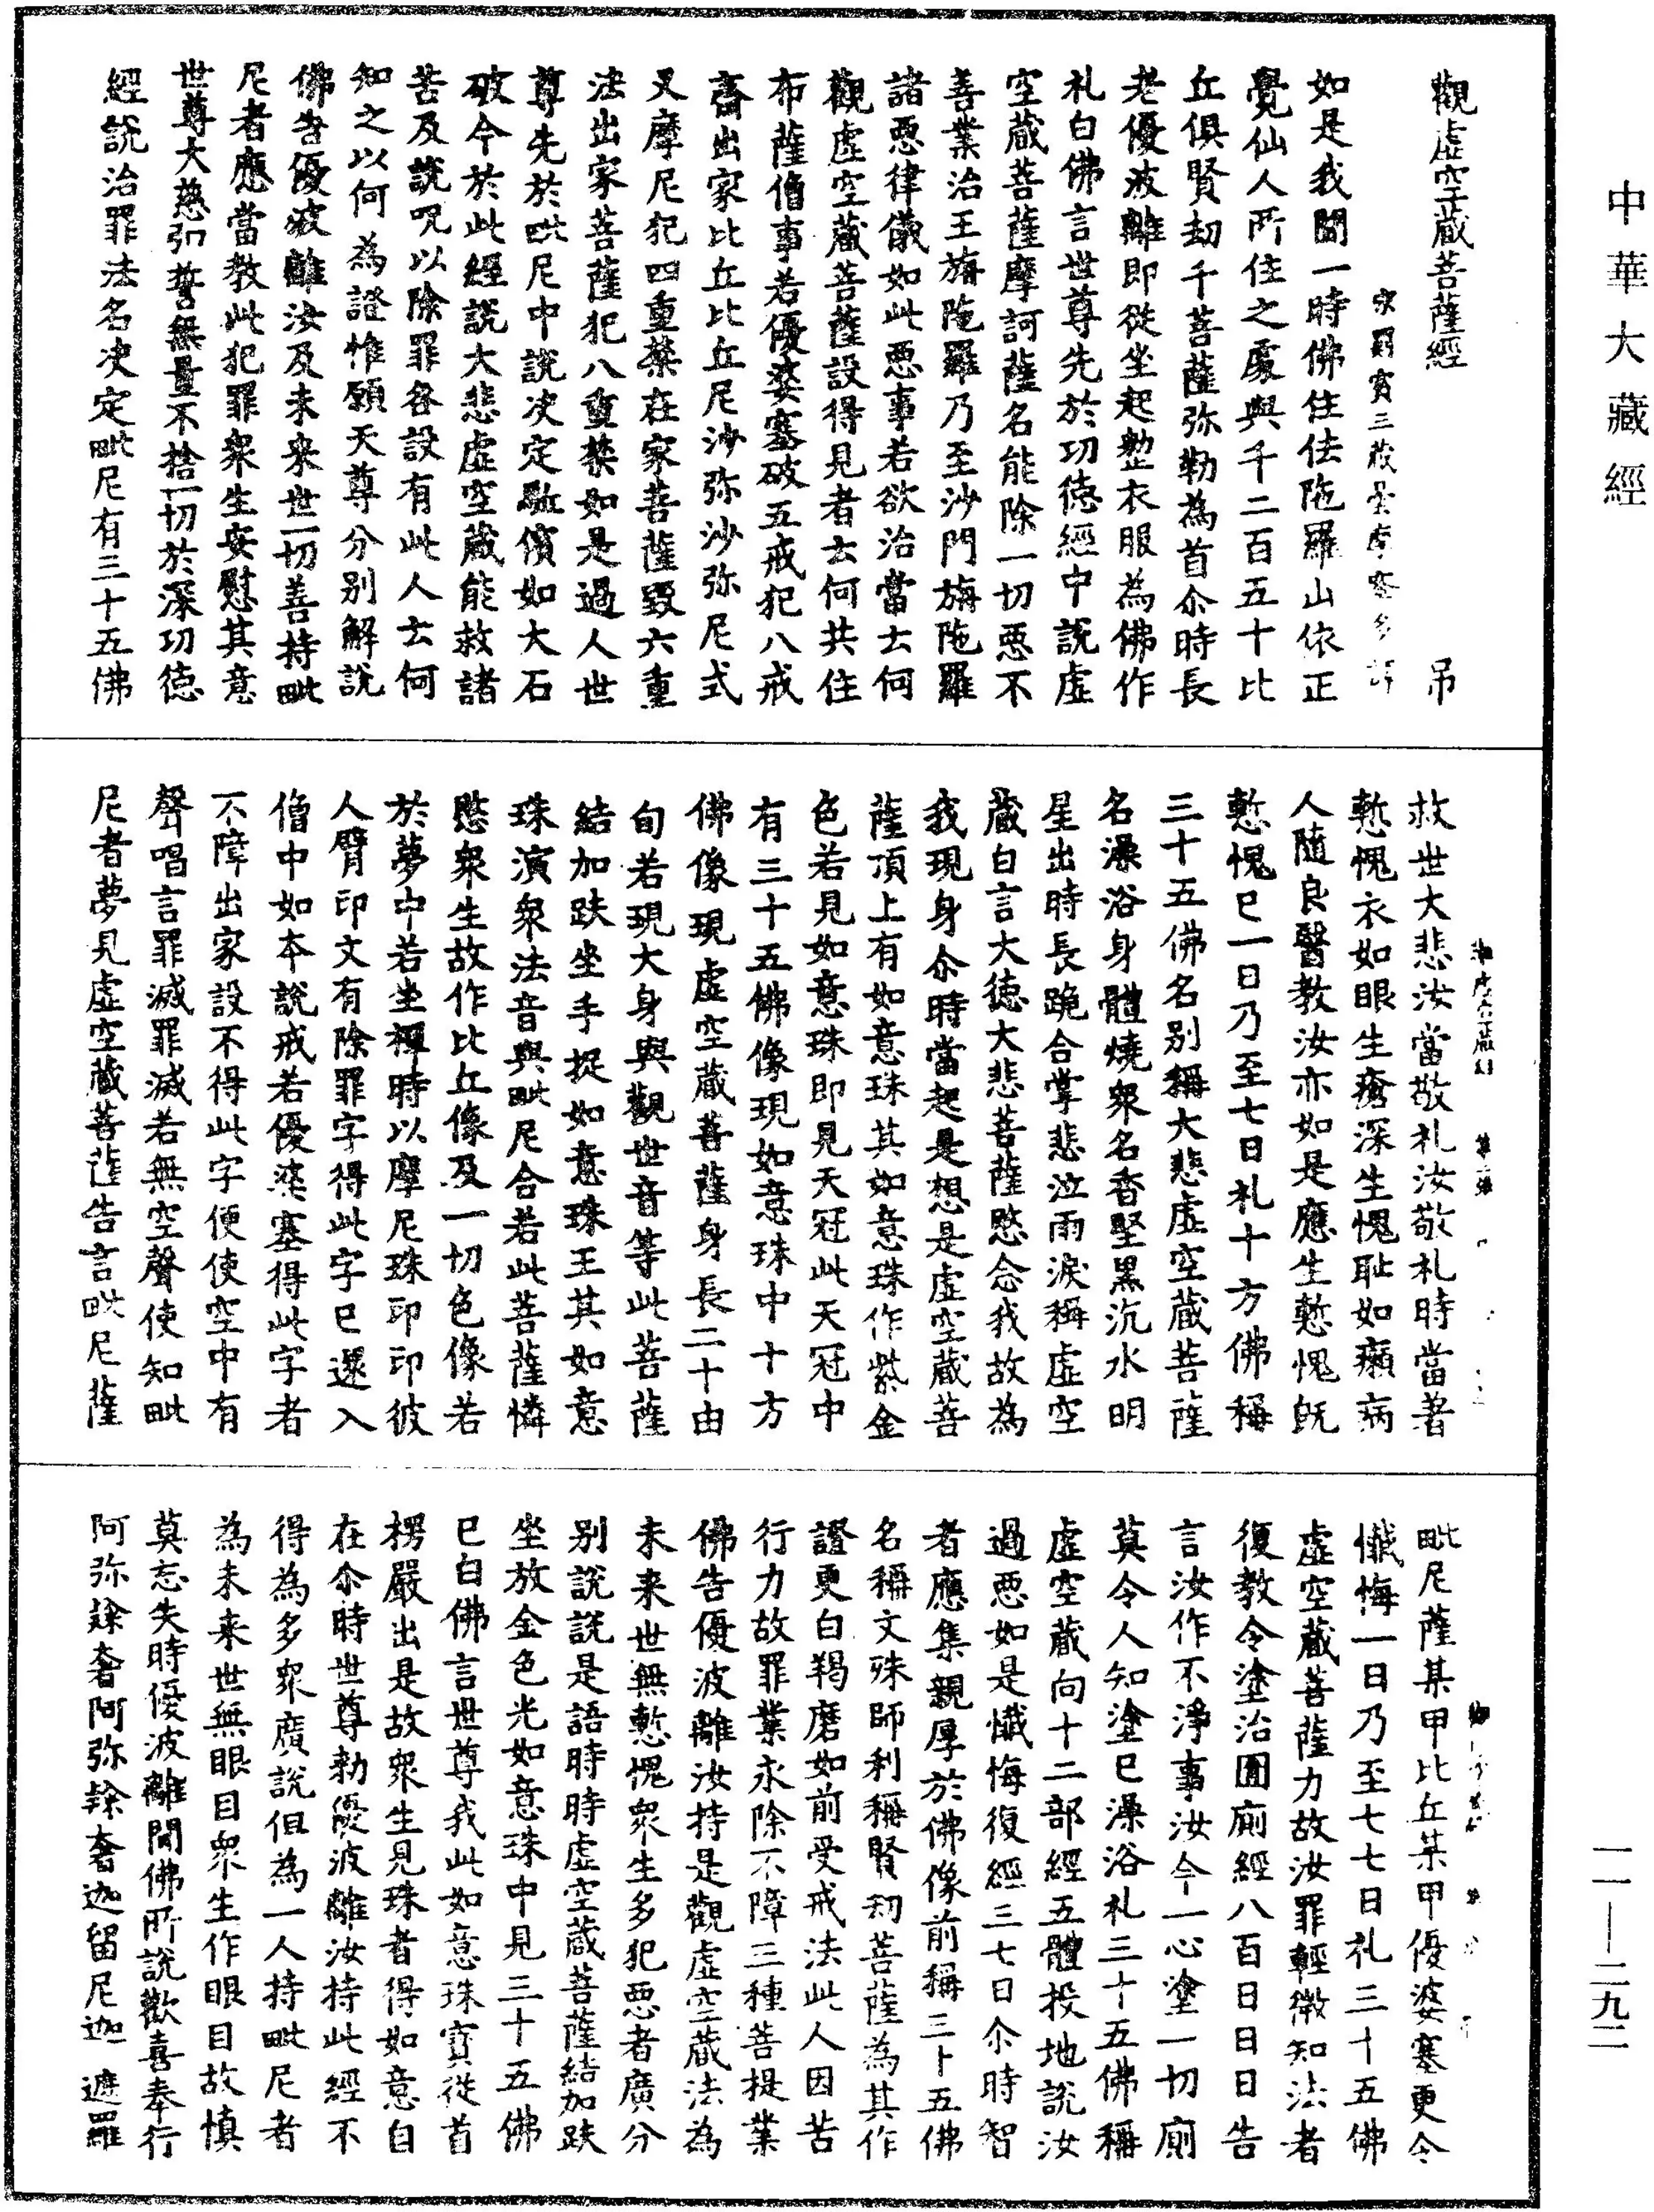 中華大藏經
觀虛空藏菩薩經 吊
宋罽賓三藏曇摩蜜多譯
如是我聞一時佛住佉陁羅山依正
覺仙人所住之處與千二百五十比
丘俱賢劫千菩薩弥勒為首尒時長
老優波離即從坐起整衣服為佛作
礼白佛言世尊先於功德經中說虛
空藏菩薩摩訶薩名能除一切惡不
善業治王旃陁羅乃至沙門旃陁羅
諸惡律儀如此惡事若欲治當云何
觀虛空藏菩薩設得見者云何共住
布薩僧事若優婆塞破五戒犯八戒
齋出家比丘比丘尼沙弥沙弥尼式
叉摩尼犯四重禁在家菩薩毀六重
法出家菩薩犯八重禁如是過人世
尊先於毗尼中說决定驅儐如大石
破今於此經說大悲虛空藏能救諸
苦及說呪以除罪咎設有此人云何
知之以何為證惟願天尊分别解說
佛告優波離汝及未來世一切善持毗
尼者應當教此犯罪衆生安慰其意
世尊大慈弘誓無量不捨一切於深功德
經說治罪法名决定毗尼有三十五佛
救世大悲汝當敬礼汝敬礼時當著
慙愧衣如眼生瘡深生愧耻如癩病
人隨良醫教汝亦如是應生慙愧旣
慙愧已一日乃至七日礼十方佛稱
三十五佛名别稱大悲虛空藏菩薩
名澡浴身體燒衆名香堅黑沉水明
星出時長跪合掌悲泣雨淚稱虛空
藏白言大德大悲菩薩愍念我故為
我現身尒時當起是想是虛空藏菩
薩頂上有如意珠其如意珠作紫金
色若見如意珠即見天冠此天冠中
有三十五佛像現如意珠中十方
佛像現虛空藏菩薩身長二十由
旬若現大身與觀世音等此菩薩
結加趺坐手捉如意珠王其如意
珠演衆法音與毗尼合若此菩薩憐
愍衆生故作比丘像及一切色像若
於夢中若坐禪時以摩尼珠印印彼
人臂印文有除罪字得此字已還入
僧中如本說戒若優婆塞得此字者
不障出家設不得此字便使空中有
聲唱言罪滅罪滅若無空聲使知毗
尼者夢見虛空藏菩薩告言毗尼薩
毗尼薩某甲比丘某甲優婆塞更令
懺悔一日乃至七七日礼三十五佛
虛空藏菩薩力故汝罪輕微知法者
復教令塗治圊廁經八百日日日告
言汝作不淨事汝今一心塗一切廁
莫令人知塗已澡浴礼三十五佛稱
虛空藏向十二部經五體投地說汝
過惡如是懺悔復經三七日尒時智
者應集親厚於佛像前稱三十五佛
名稱文殊師利稱賢劫菩薩為其作
證更白羯磨如前受戒法此人因苦
行力故罪業永除不障三種菩提業
佛告優波離汝持是觀虛空藏法為
未来世無慙愧衆生多犯惡者廣分
别說說是語時時虛空藏菩薩結加趺
坐放金色光如意珠中見三十五佛
已白佛言世尊我此如意珠寶從首
楞嚴出是故衆生見珠者得如意自
在尒時世尊勑優波離汝持此經不
得為多衆廣說但為一人持毗尼者
為未來世無眼目衆生作眼目故慎
莫忘失時優波離聞佛所說歡喜奉行
阿弥䟃奢阿弥䟃奢迦留尼迦 遮羅
一一—二九二